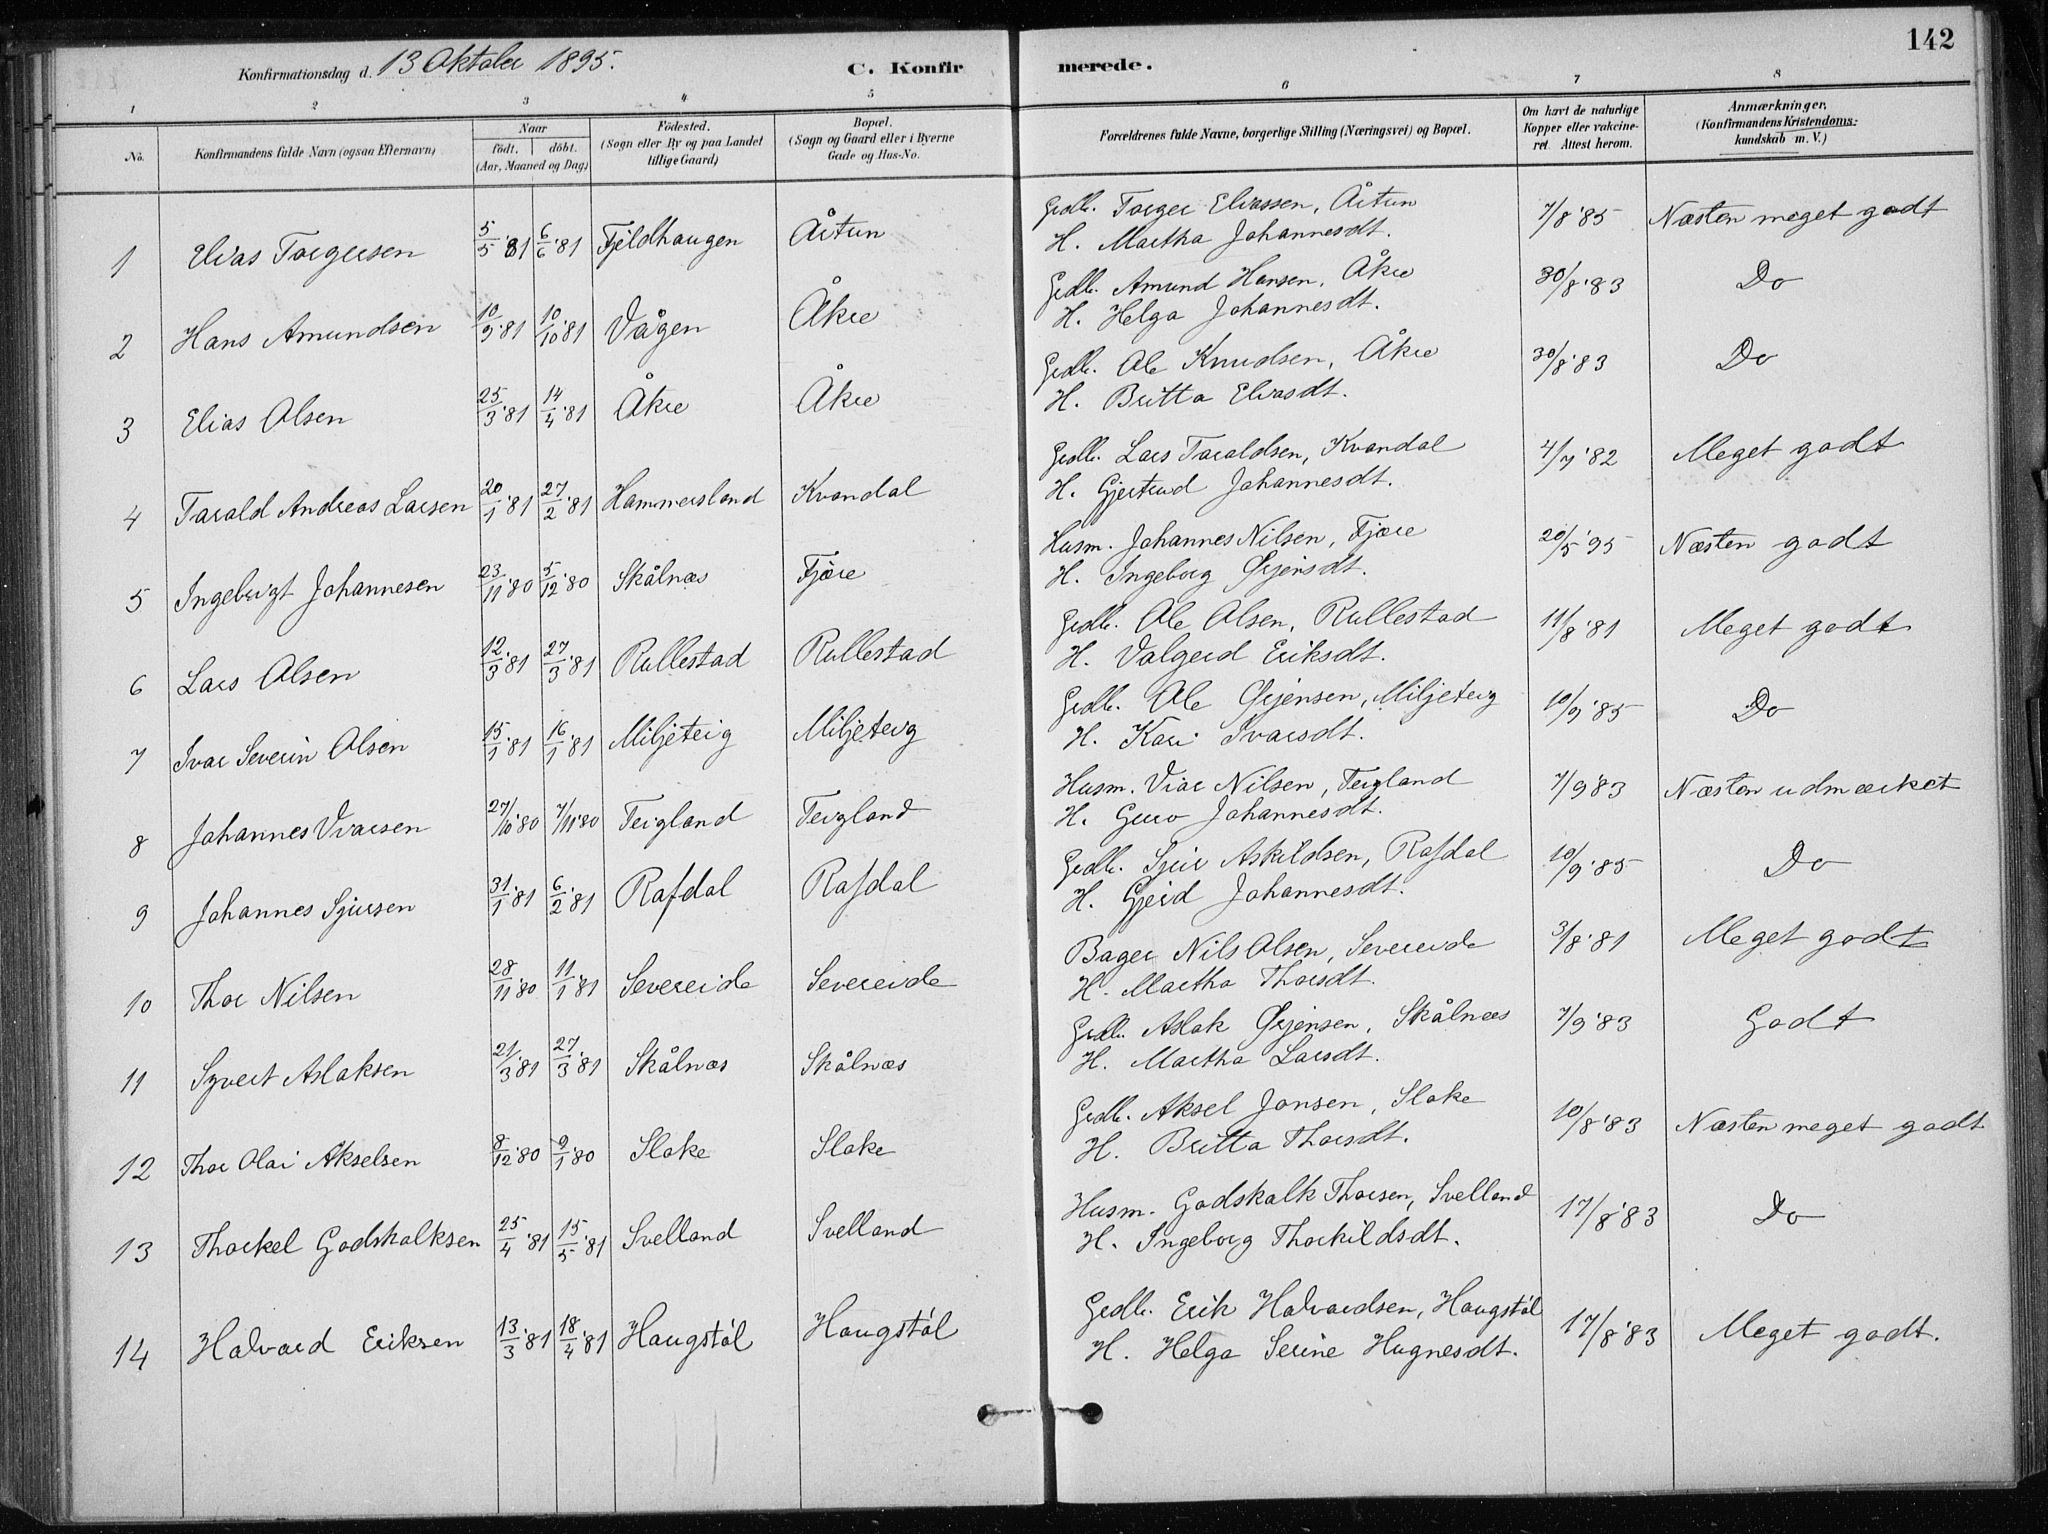 142
Konfirmationsdag d. 13 Oktober 1895.
C. Konfirmerede.
1 2 3 4 5 6 7 8
No.
Konfirmandens fulde Navn (ogsaa Efternavn)
Naar
født. døbt.
(Aar, Maaned og Dag)
Fødested.
(Sogn eller By og paa Landet
tillige Gaard)
Bopæl.
(Sogn og Gaard eller i Byerne
Gade og Hus-No.
Forældrenes fulde Navne, borgerlige Stilling (Næringsvei) og Bopæl.
Om havt de naturlige
Kopper eller vakcine-
ret. Attest herom.
Anmærkninger.
(Konfirmandens Kristendoms-
kundskab m. V.)
1 Elias Torgersen 5/5 '81 6/6 '81 Fjeldhaugen Åitun Gedb. Torger Eliassen, Åitun 7/8 '85 Næsten meget godt
H. Martha Johannesdt.
2 Hans Amundsen 10/9 '81 10/10 '81 Vågen Åkre Gedb. Amund Hansen, Åkre 30/8 '83 Do
H. Helga Johannesdt.
3 Elias Olsen 25/3 '81 14/4 '81 Åkre Åkre Gedb. Ole Knudsen, Åkre 30/8 '83 Do
H. Britta Eliasdt.
4 Tarald Andreas Larsen 20/1 '81 27/2 '81 Hammersland Kvandal Gedb. Lars Taraldsen, Kvandal 4/7 '82 Meget godt
H. Gjertrud Johannesdt.
5 Ingebrigt Johannesen 23/11 '80 5/12 '80 Skålnæs Fjære Husm. Johannes Nilsen, Fjære 20/5 '95 Næsten godt
H. Ingeborg Ørjensdt.
6 Lars Olsen 12/3 '81 27/3 '81 Rullestad Rullestad Gedb. Ole Olsen, Rullestad 11/8 '81 Meget godt
H. Valgerd Eriksdt.
7 Ivar Severin Olsen 15/1 '81 16/1 '81 Miljeteig Miljeteig Gedb. Ole Ørjensen, Miljeteig 10/9 '85 Do
H. Kari Ivarsdt.
8 Johannes Vrarsen 27/10 '80 7/11 '80 Teigland Teigland Husm. Viar Nilsen, Teigland 7/9 83 Næsten udmærket
H. Guro Johannesdt.
9 Johannes Sjursen 31/1 '81 6/2 '81 Rafdal Rafdal Gedb. Sjur Askildsen, Rafdal 10/9 '85 Do
H. Gjerd Johannesdt.
10 Thor Nilsen 28/11 '80 11/1 '81 Severeide Severeide Bager Nils Olsen, Severeide 3/8 '81 Meget godt
H. Martha Thorsdt.
11 Syvert Aslaksen 21/3 '81 27/3 '81 Skålnæs Skålnæs Gedb. Aslak Ørjensen, Skålnæs 7/9 '83 Godt
H. Martha Larsdt.
12 Thor Olai Akselsen 8/12 '80 9/1 '80 Slake Slake Gedb. Aksel Jonsen, Slake 10/8 '83 Næsten meget godt
H. Britta Thorsdt.
13 Thorkel Godskalksen 25/4 '81 15/5 '81 Svelland Svelland Husm. Godskalk Thorsen, Svelland 17/8 '83 Do
H. Ingeborg Thorkildsdt.
14 Halvard Eriksen 13/3 '81 18/4 '81 Haugstøl Haugstøl Gedb. Erik Halvardsen, Haugstøl 17/8 '83 Meget godt.
H. Helga Serine Hugnesdt.